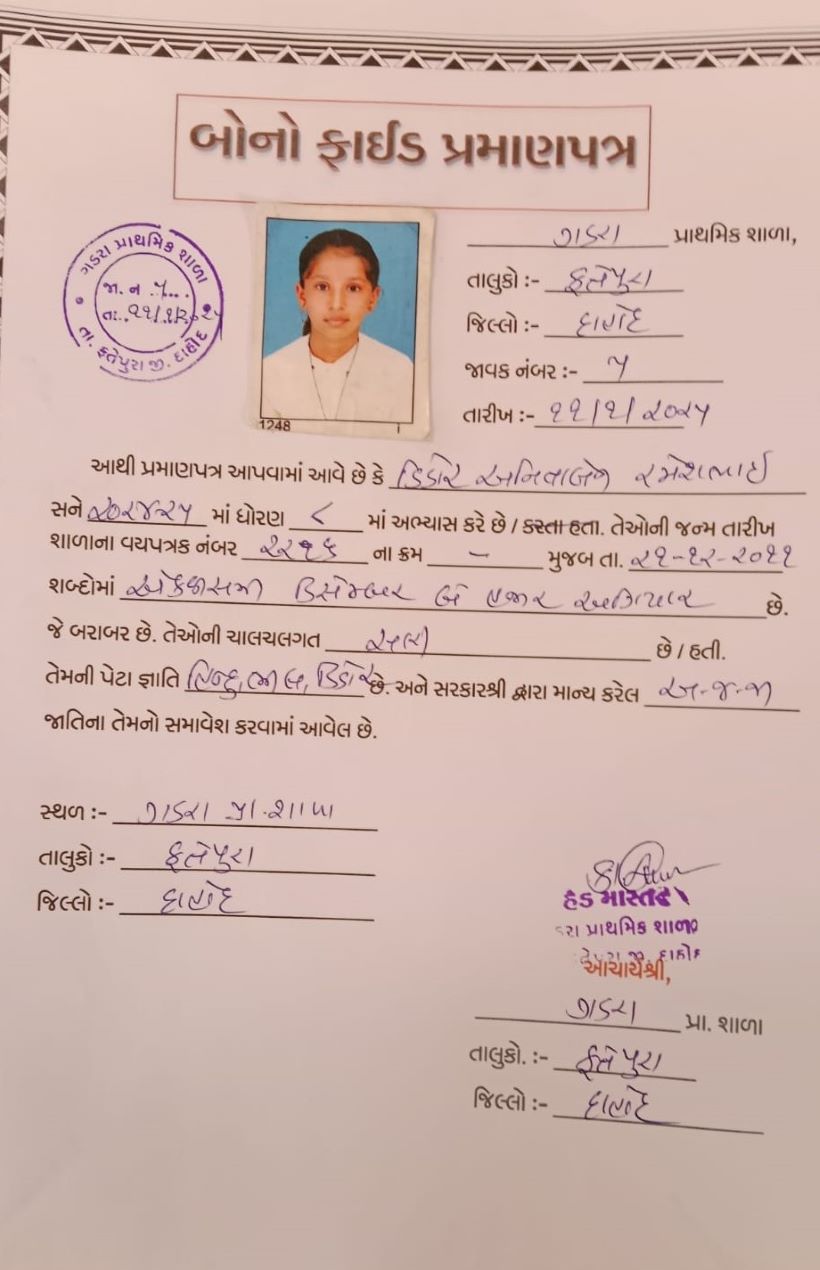 બોનો ફાઈડ પ્રમાણપત્ર
ગડરા પ્રાથમિક શાળા
જા. ન ૫
તા. ૧૧/૧/૨૦૨૫
તા. ફતેપુરા જી. દાહોદ
1248
ગડરા પ્રાથમિક શાળા,
તાલુકો :- ફતેપુરા
જિલ્લો :- દાહોદ
જાવક નંબર :- ૫
તારીખ :- ૧૧/૧/૨૦૨૫
આથી પ્રમાણપત્ર આપવામાં આવે છે કે ડિંડોર અમિતાબેન રમેશભાઈ
સને ૨૦૨૪-૨૫ માં ધોરણ ૮ માં અભ્યાસ કરે છે / કરતા હતા. તેઓની જન્મ તારીખ
શાળાના વયપત્રક નંબર ૨૨૧૬ ના ક્રમ - મુજબ તા. ૨૧-૧૨-૨૦૧૧
શબ્દોમાં એકવીસમી ડિસેમ્બર બે હજાર અગિયાર છે.
જે બરાબર છે. તેઓની ચાલચલગત સારી છે / હતી.
તેમની પેટા જ્ઞાતિ હિન્દુ, ભીલ, ડિંડોર છે. અને સરકારશ્રી દ્વારા માન્ય કરેલ અ.જ.જા
જાતિના તેમનો સમાવેશ કરવામાં આવેલ છે.
સ્થળ :- ગડરા પ્રા. શાળા
તાલુકો :- ફતેપુરા
જિલ્લો :- દાહોદ
હેડ માસ્તર
પ્રાથમિક શાળા
જી. દાહોદ
આચાર્યશ્રી,
ગડરા પ્રા. શાળા
તાલુકો. :- ફતેપુરા
જિલ્લો :- દાહોદ